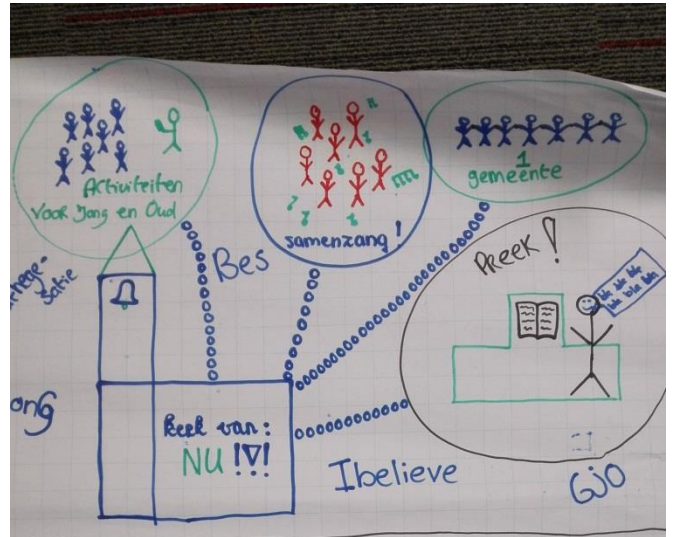 Activiteiten
Voor Jong en Oud
samenzang!
1
gemeente
Preek!
bla bla bla
bla bla bla
Bes
ong
Kerk van:
NU !V!
Ibelieve
GJO